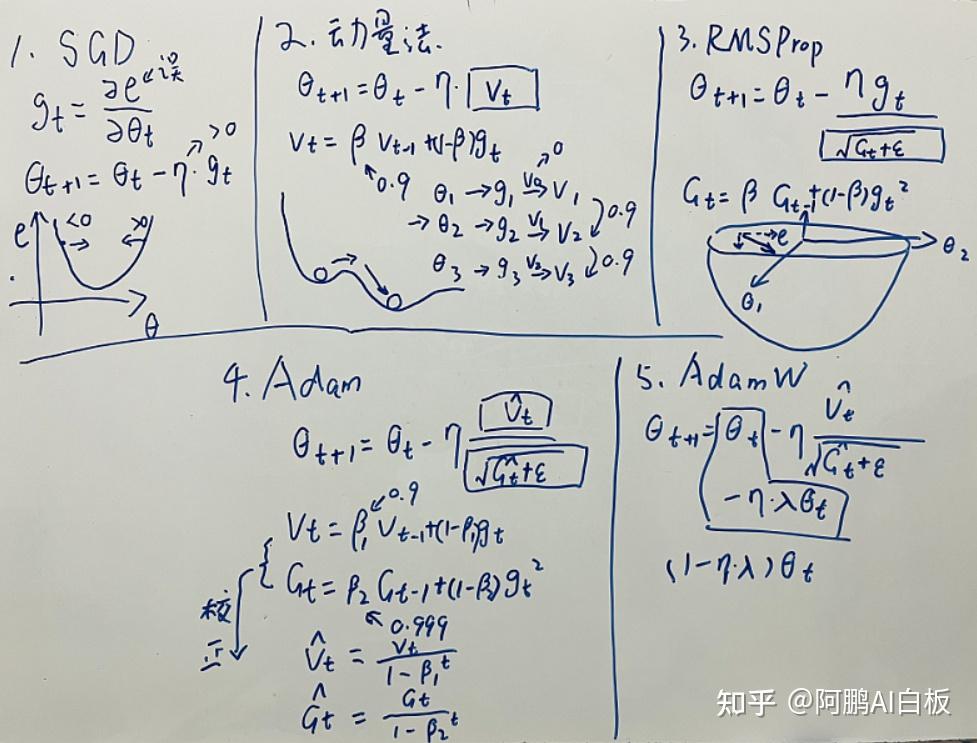 1. SGD
g_t = ∂e/∂θ_t ← 误
θ_{t+1} = θ_t - η·g_t ↗ >0
e <0 → ← >0
θ
2. 动量法.
θ_{t+1} = θ_t - η·[V_t]
V_t = β V_{t-1} + (1-β)g_t
↖ 0.9 θ_1 → g_1 →^{V_0} V_1 ↗ 0
→ θ_2 → g_2 →^{V_1} V_2 0.9
θ_3 → g_3 →^{V_2} V_3 0.9
3. RMSProp
θ_{t+1} = θ_t - η g_t / √(G_t+ε)
G_t = β G_{t-1} + (1-β)g_t²
e
θ_2
θ_1
4. Adam
θ_{t+1} = θ_t - η V̂_t / √(Ĝ_t+ε)
V_t = β_1 V_{t-1} + (1-β_1)g_t ↙ 0.9
G_t = β_2 G_{t-1} + (1-β_2)g_t²
↖ 0.999
校正
V̂_t = V_t / (1-β_1^t)
Ĝ_t = G_t / (1-β_2^t)
5. AdamW
θ_{t+1} = θ_t - η V̂_t / √(Ĝ_t+ε)
-η·λθ_t
(1-η·λ)θ_t
知乎 @阿鹏AI白板